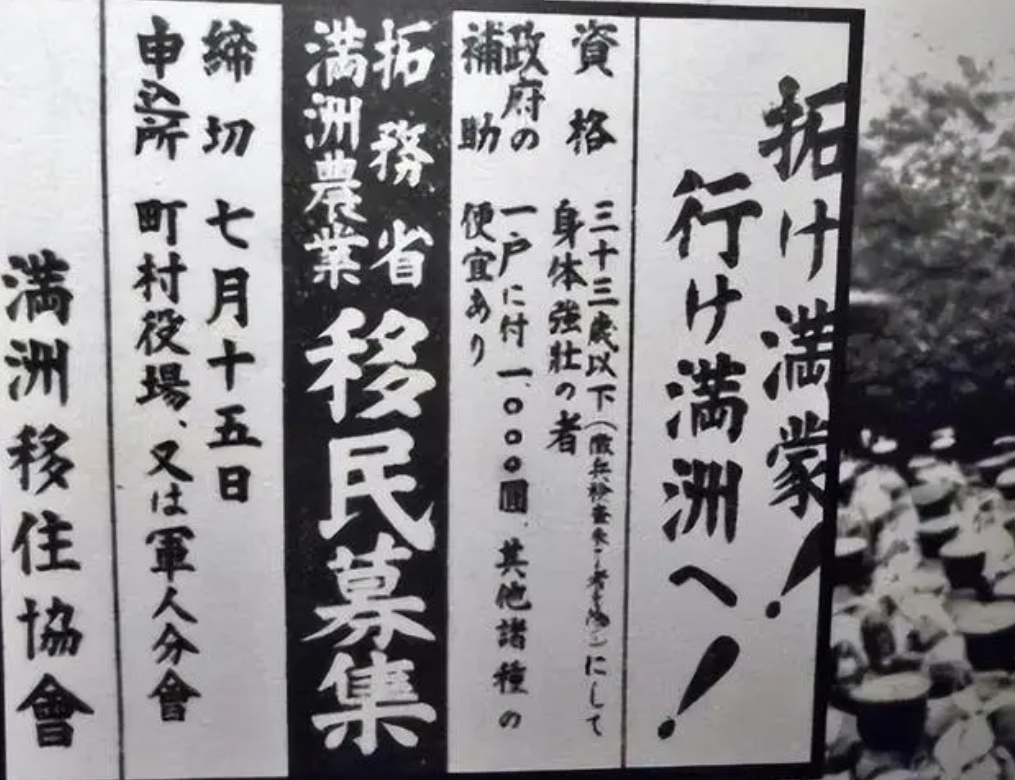 拓け満蒙!
行け満洲へ!
資格 三十三歳以下(徴兵検査未了者)にして
身体強壮の者
政府の
補助
一戸に付一、〇〇〇圓、其他諸種の
便宜あり
拓務省
満洲農業
移民募集
締切 七月十五日
申込所 町村役場、又は軍人分會
満洲移住協會